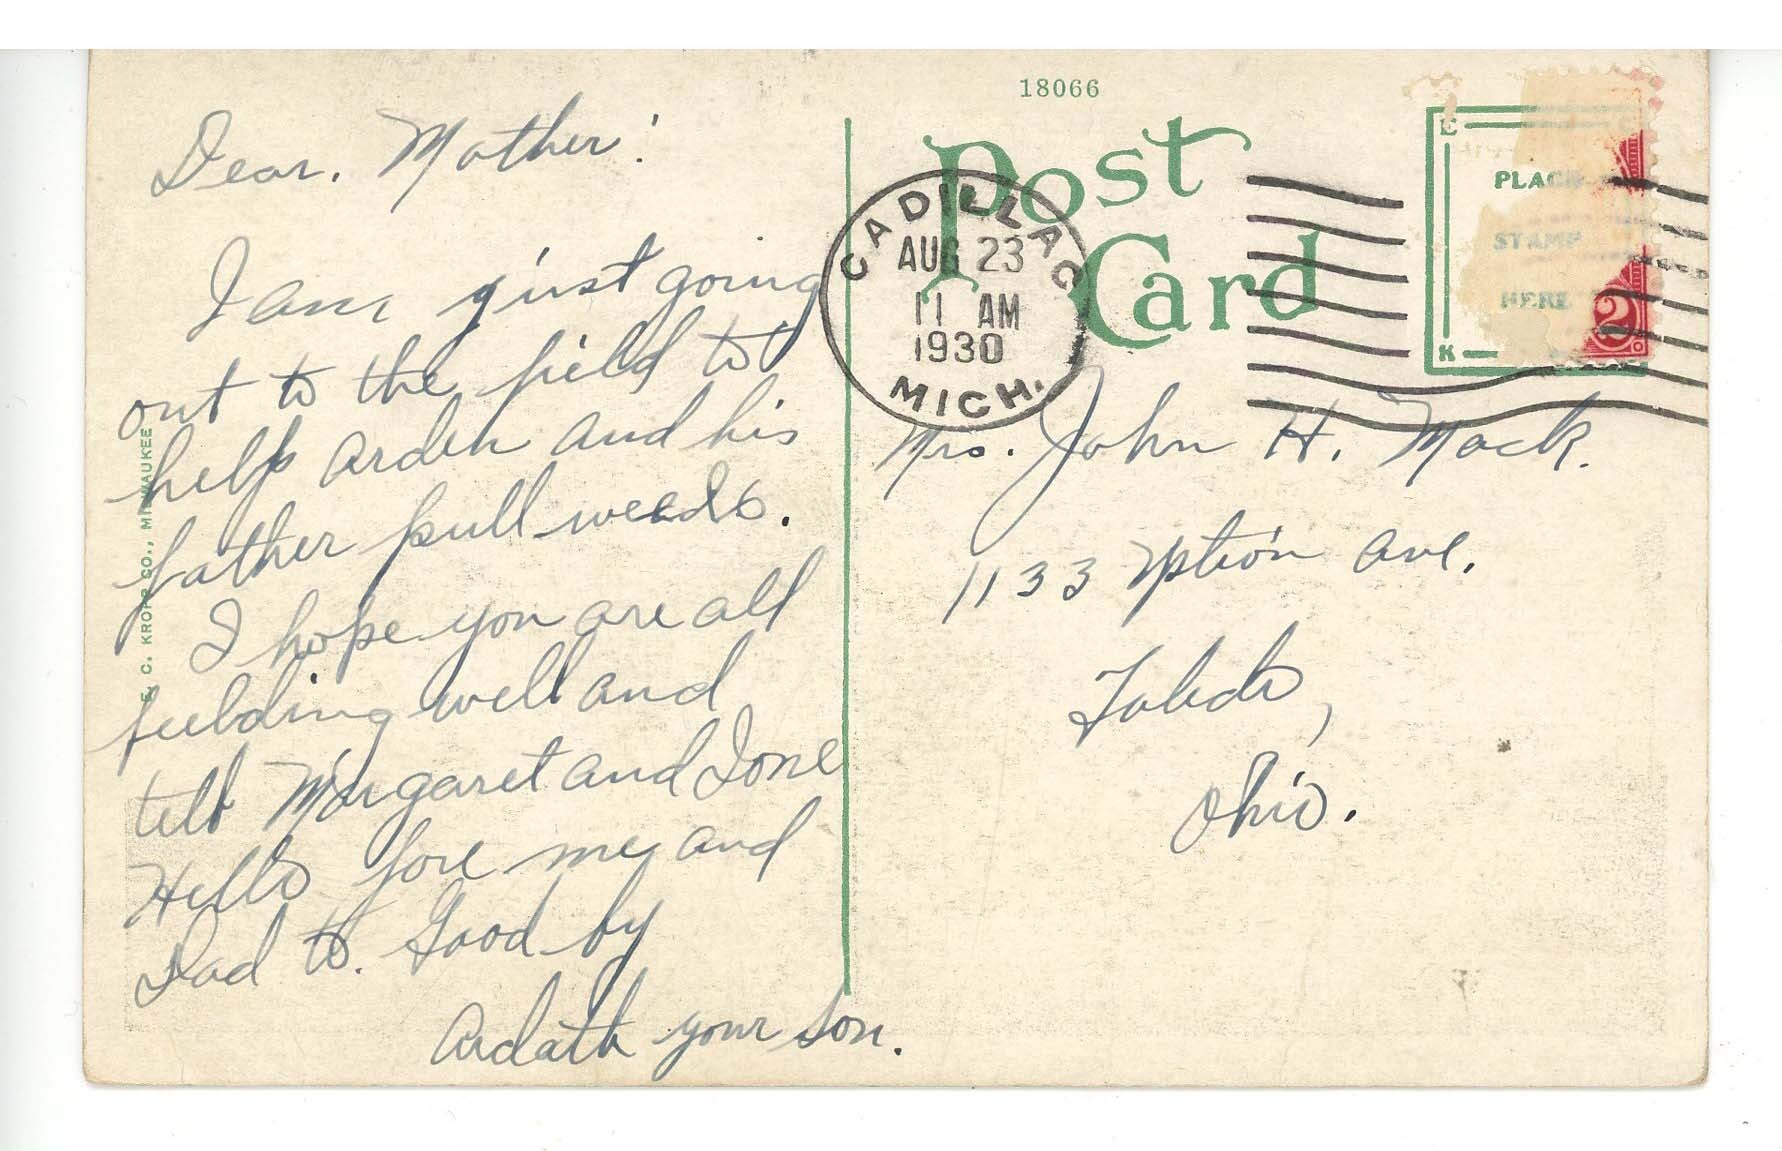 18066
Post
Card
E
K
PLACE
STAMP
HERE
2
CADILLAC
AUG 23
11 AM
1930
MICH.
Dear. Mother!
I am just going
out to the field to
help Arden and his
father pull weeds.
I hope you are all
feelding well and
tell Margaret and Ione
Hello fore me and
Dad to. Good by
Ardath your son.
Mrs. John H. Mack.
1133 Ave.
Toledo,
Ohio.
E. C. KROPP CO., MILWAUKEE